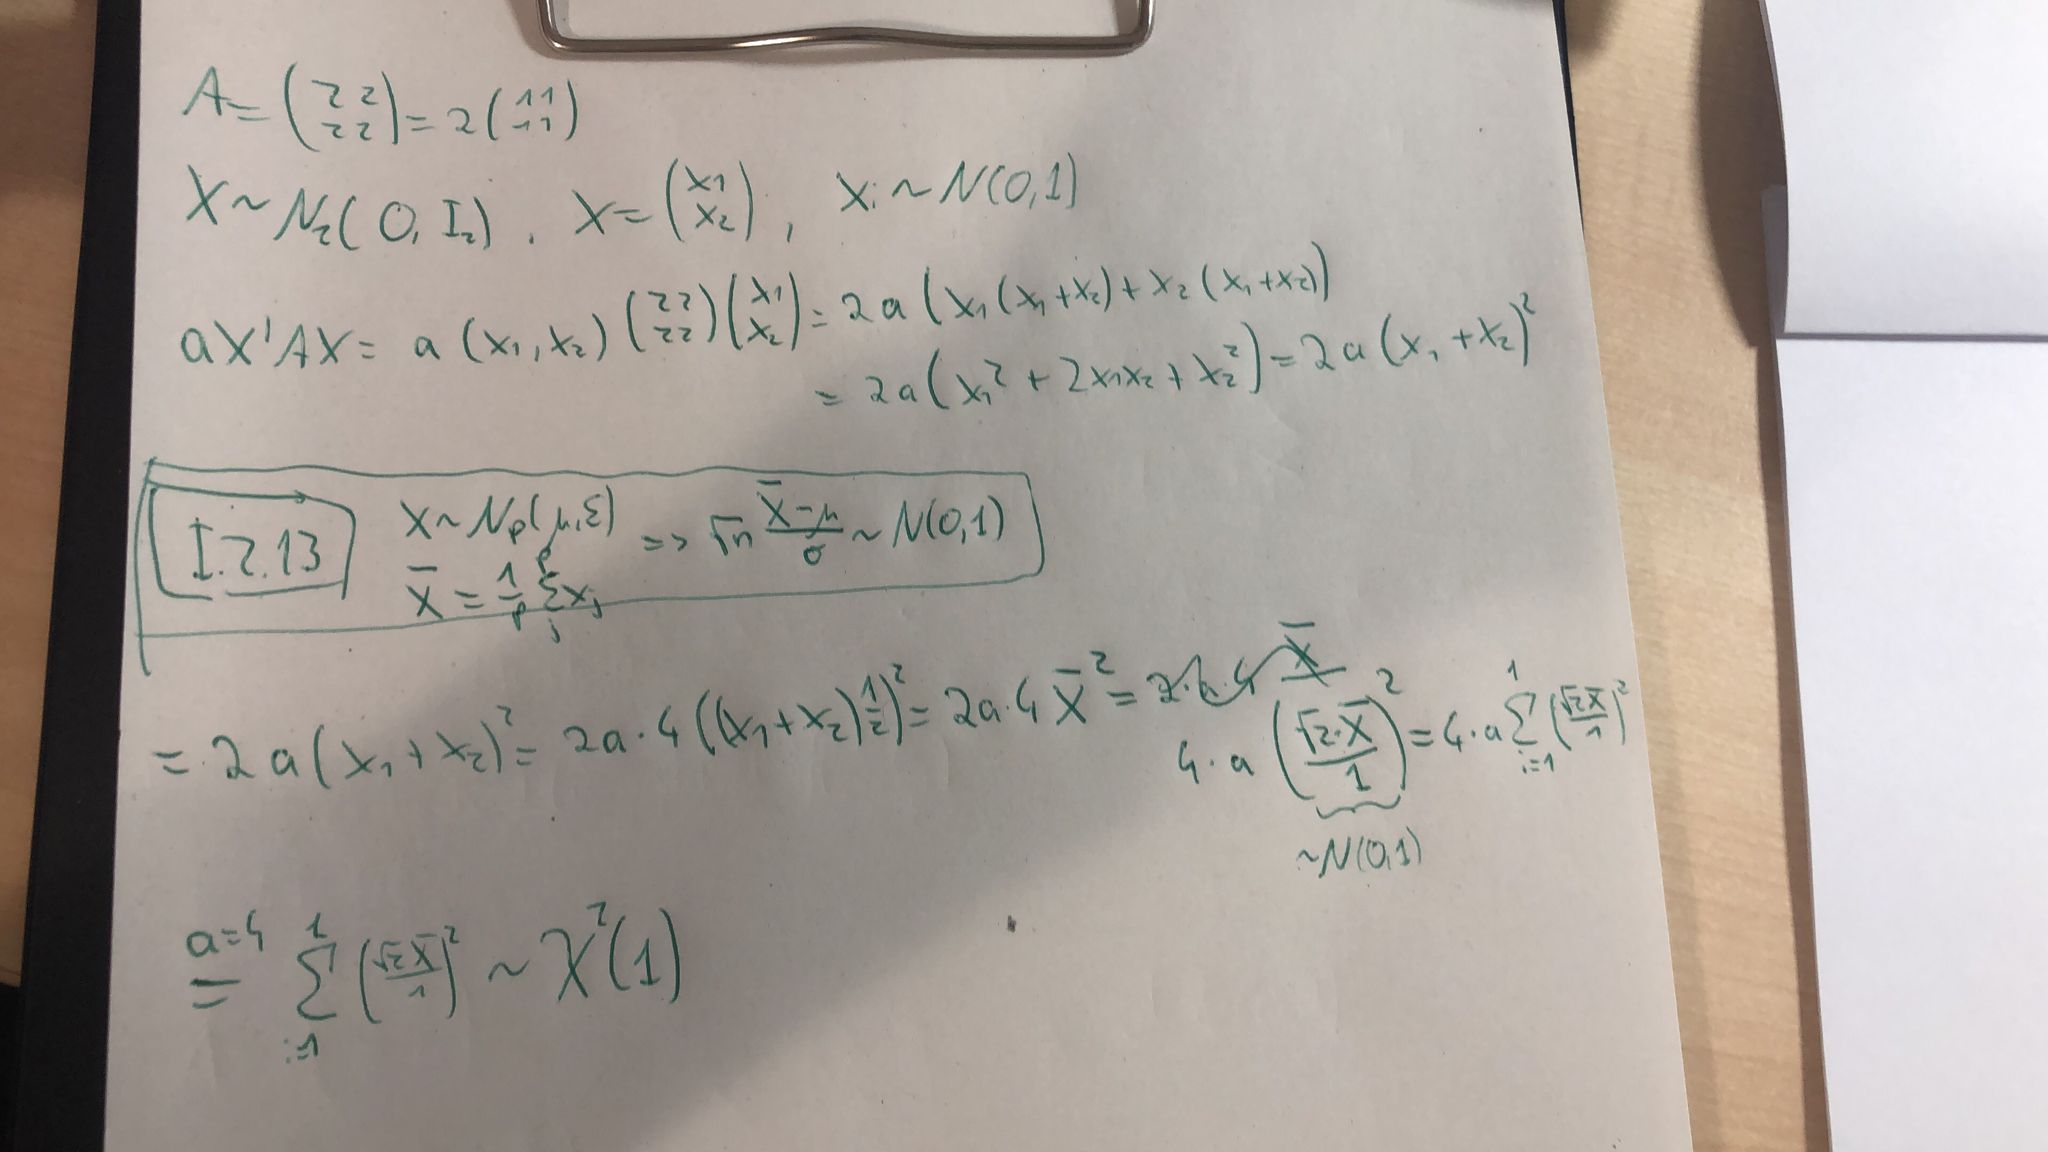 A = (2 2 / 2 2) = 2 (1 1 / 1 1)
X ~ N₂(0, I₂), X = (x₁ / x₂), Xᵢ ~ N(0,1)
aX'AX = a (x₁, x₂) (2 2 / 2 2) (x₁ / x₂) = 2a (x₁(x₁+x₂) + x₂(x₁+x₂))
= 2a (x₁² + 2x₁x₂ + x₂²) = 2a (x₁ + x₂)²
I.2.13 X ~ Nₚ(μ, Σ) => √n (X̄-μ)/σ ~ N(0,1)
X̄ = 1/p Σⱼᵖ xⱼ
= 2a (x₁ + x₂)² = 2a · 4 ((x₁+x₂) 1/2)² = 2a·4 X̄² =
4·a (√2·X̄ / 1)² = 4·a Σᵢ₌₁¹ (√2 X̄ / 1)²
~N(0,1)
a=4
= Σᵢ₌₁¹ (√2 X̄ / 1)² ~ χ²(1)